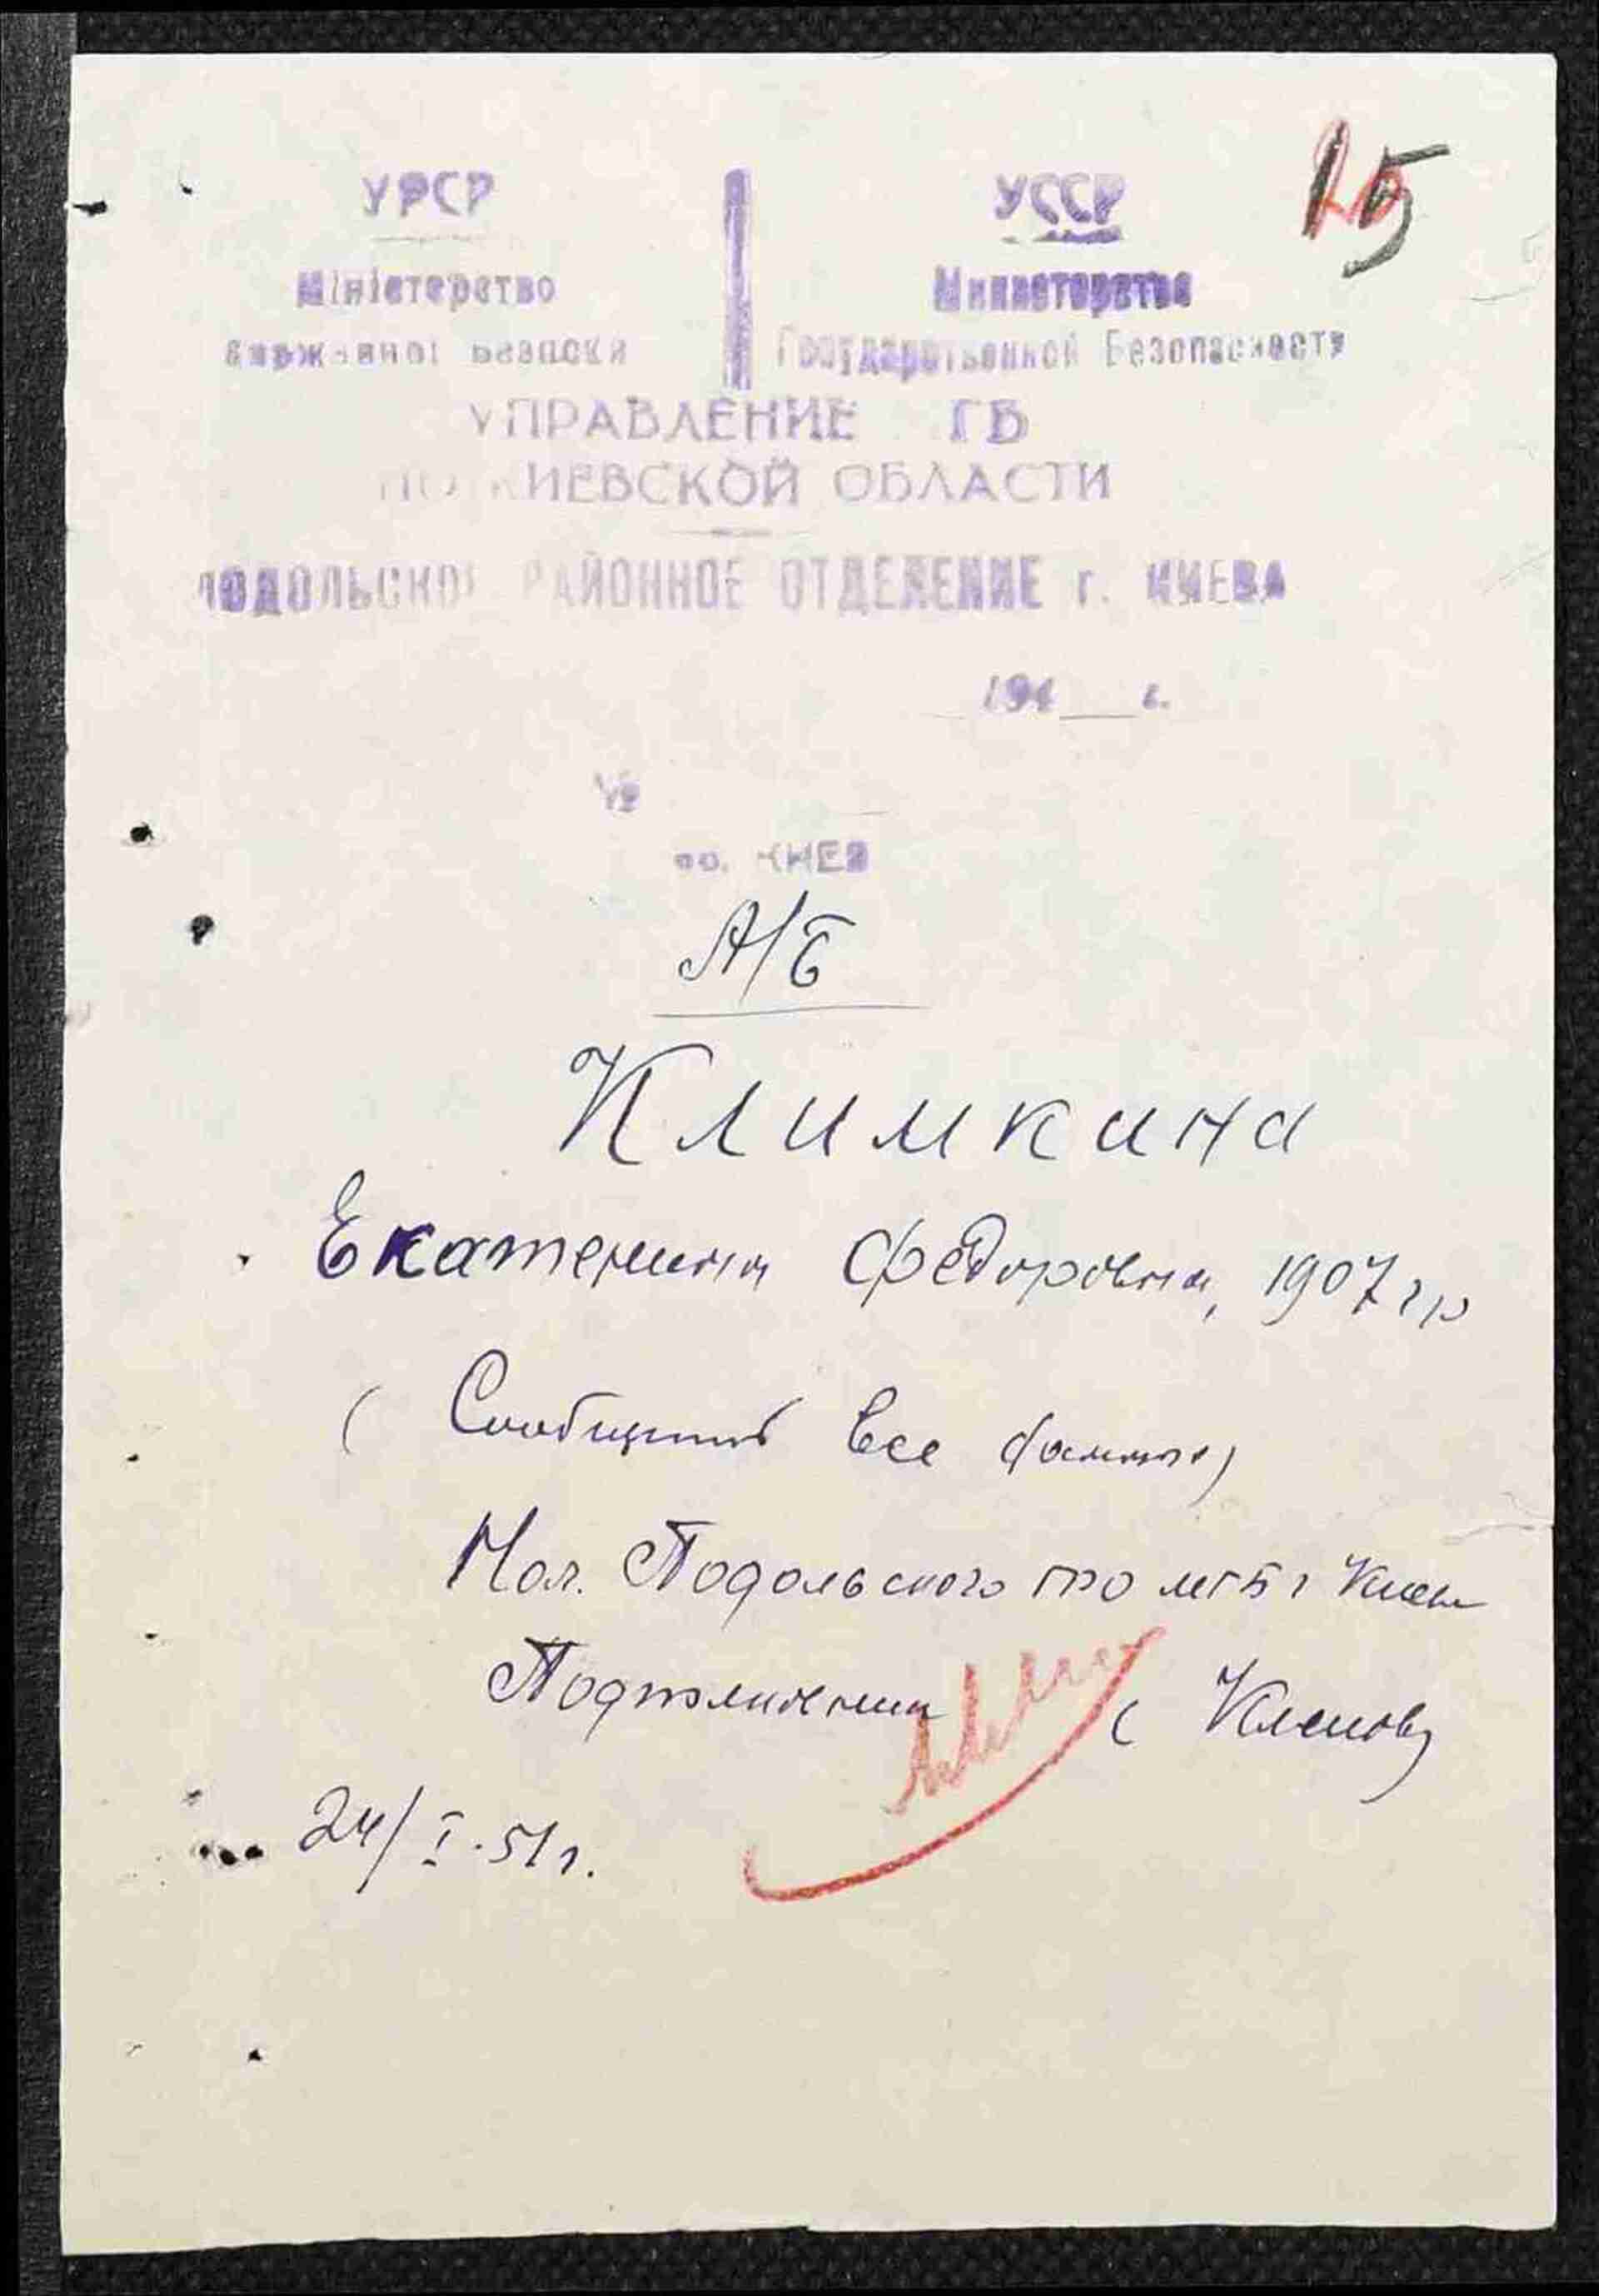 25
УРСР УССР
Міністерство Министерство
Державної Безпеки Государственной Безопасности
УПРАВЛЕНИЕ ГБ
ПО КИЕВСКОЙ ОБЛАСТИ
ПОДОЛЬСКОЕ РАЙОННОЕ ОТДЕЛЕНИЕ г. КИЕВА
194 г.
№
КИЕВ
А/Б
Климкина
Екатерина Федоровна, 1907 гр
( Сообщить все данные)
Нач. Подольского РО МГБ г Киева
Подполковник ( Климов)
24/I.51г.